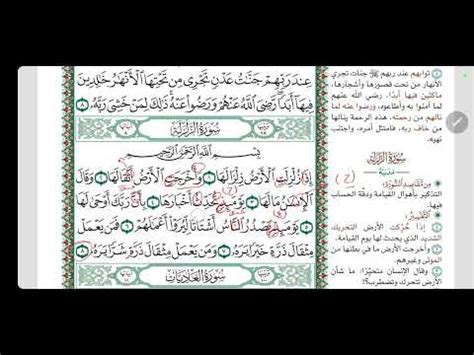 عِندَ رَبِّهِمْ جَنَّٰتُ عَدْنٍ تَجْرِى مِن تَحْتِهَا ٱلْأَنْهَٰرُ خَٰلِدِينَ
فِيهَآ أَبَدًا رَّضِىَ ٱللَّهُ عَنْهُمْ وَرَضُوا۟ عَنْهُ ذَٰلِكَ لِمَنْ خَشِىَ رَبَّهُۥ ٨
سُورَةُ الزَّلْزَلَةِ
بِسْمِ ٱللَّهِ ٱلرَّحْمَٰنِ ٱلرَّحِيمِ
إِذَا زُلْزِلَتِ ٱلْأَرْضُ زِلْزَالَهَا ١ وَأَخْرَجَتِ ٱلْأَرْضُ أَثْقَالَهَا ٢ وَقَالَ
ٱلْإِنسَٰنُ مَا لَهَا ٣ يَوْمَئِذٍ تُحَدِّثُ أَخْبَارَهَا ٤ بِأَنَّ رَبَّكَ أَوْحَىٰ لَهَا
٥ يَوْمَئِذٍ يَصْدُرُ ٱلنَّاسُ أَشْتَاتًا لِّيُرَوْا۟ أَعْمَٰلَهُمْ ٦ فَمَن يَعْمَلْ
مِثْقَالَ ذَرَّةٍ خَيْرًا يَرَهُۥ ٧ وَمَن يَعْمَلْ مِثْقَالَ ذَرَّةٍ شَرًّا يَرَهُۥ ٨
سُورَةُ العَادِيَاتِ
ثوابهم عند ربهم جنات تجري
الأنهار من تحت قصورها وأشجارها،
ماكثين فيها أبدًا، رضي الله عنهم
لما آمنوا به وأطاعوه، ورضوا عنه لما
نالهم من رحمته، هذه الرحمة ينالها
من خاف ربه، فامتثل أمره، واجتنب
نهيه.
سُورَةُ الزَّلْزَلَةِ
مدنية
مِن مَّقَاصِدِ السُّورَةِ:
التذكير بأهوال القيامة ودقة الحساب
فيها.
التَّفْسِيرُ:
إذا حُرّكت الأرض التحريك
الشديد الذي يحدث لها يوم القيامة.
وأخرجت الأرض ما في بطنها من
الموتى وغيرهم.
وقال الإنسان متحيرًا: ما شأن
الأرض تتحرك وتضطرب؟!